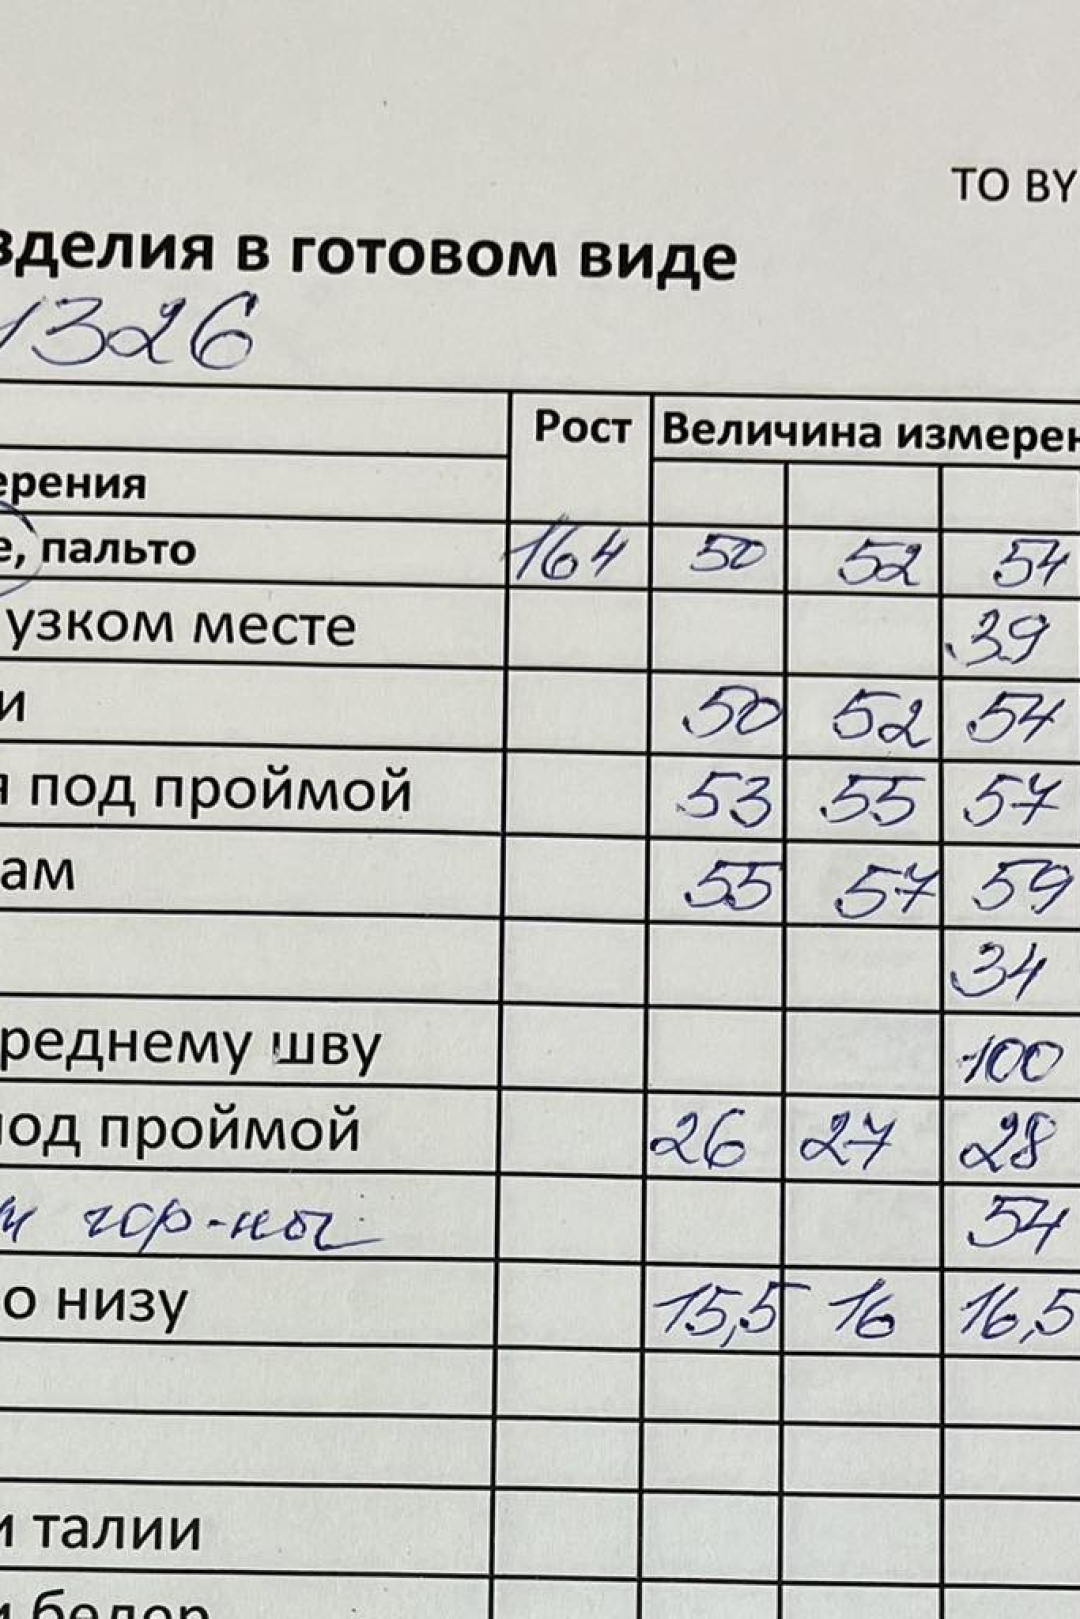 TO BY
зделия в готовом виде
1326
Рост Величина измерен
ерения
е, пальто 164 50 52 54
узком месте 39
и 50 52 54
я под проймой 53 55 57
ам 55 57 59
34
реднему шву 100
од проймой 26 27 28
гор-ны 54
о низу 15,5 16 16,5
и талии
и бедер